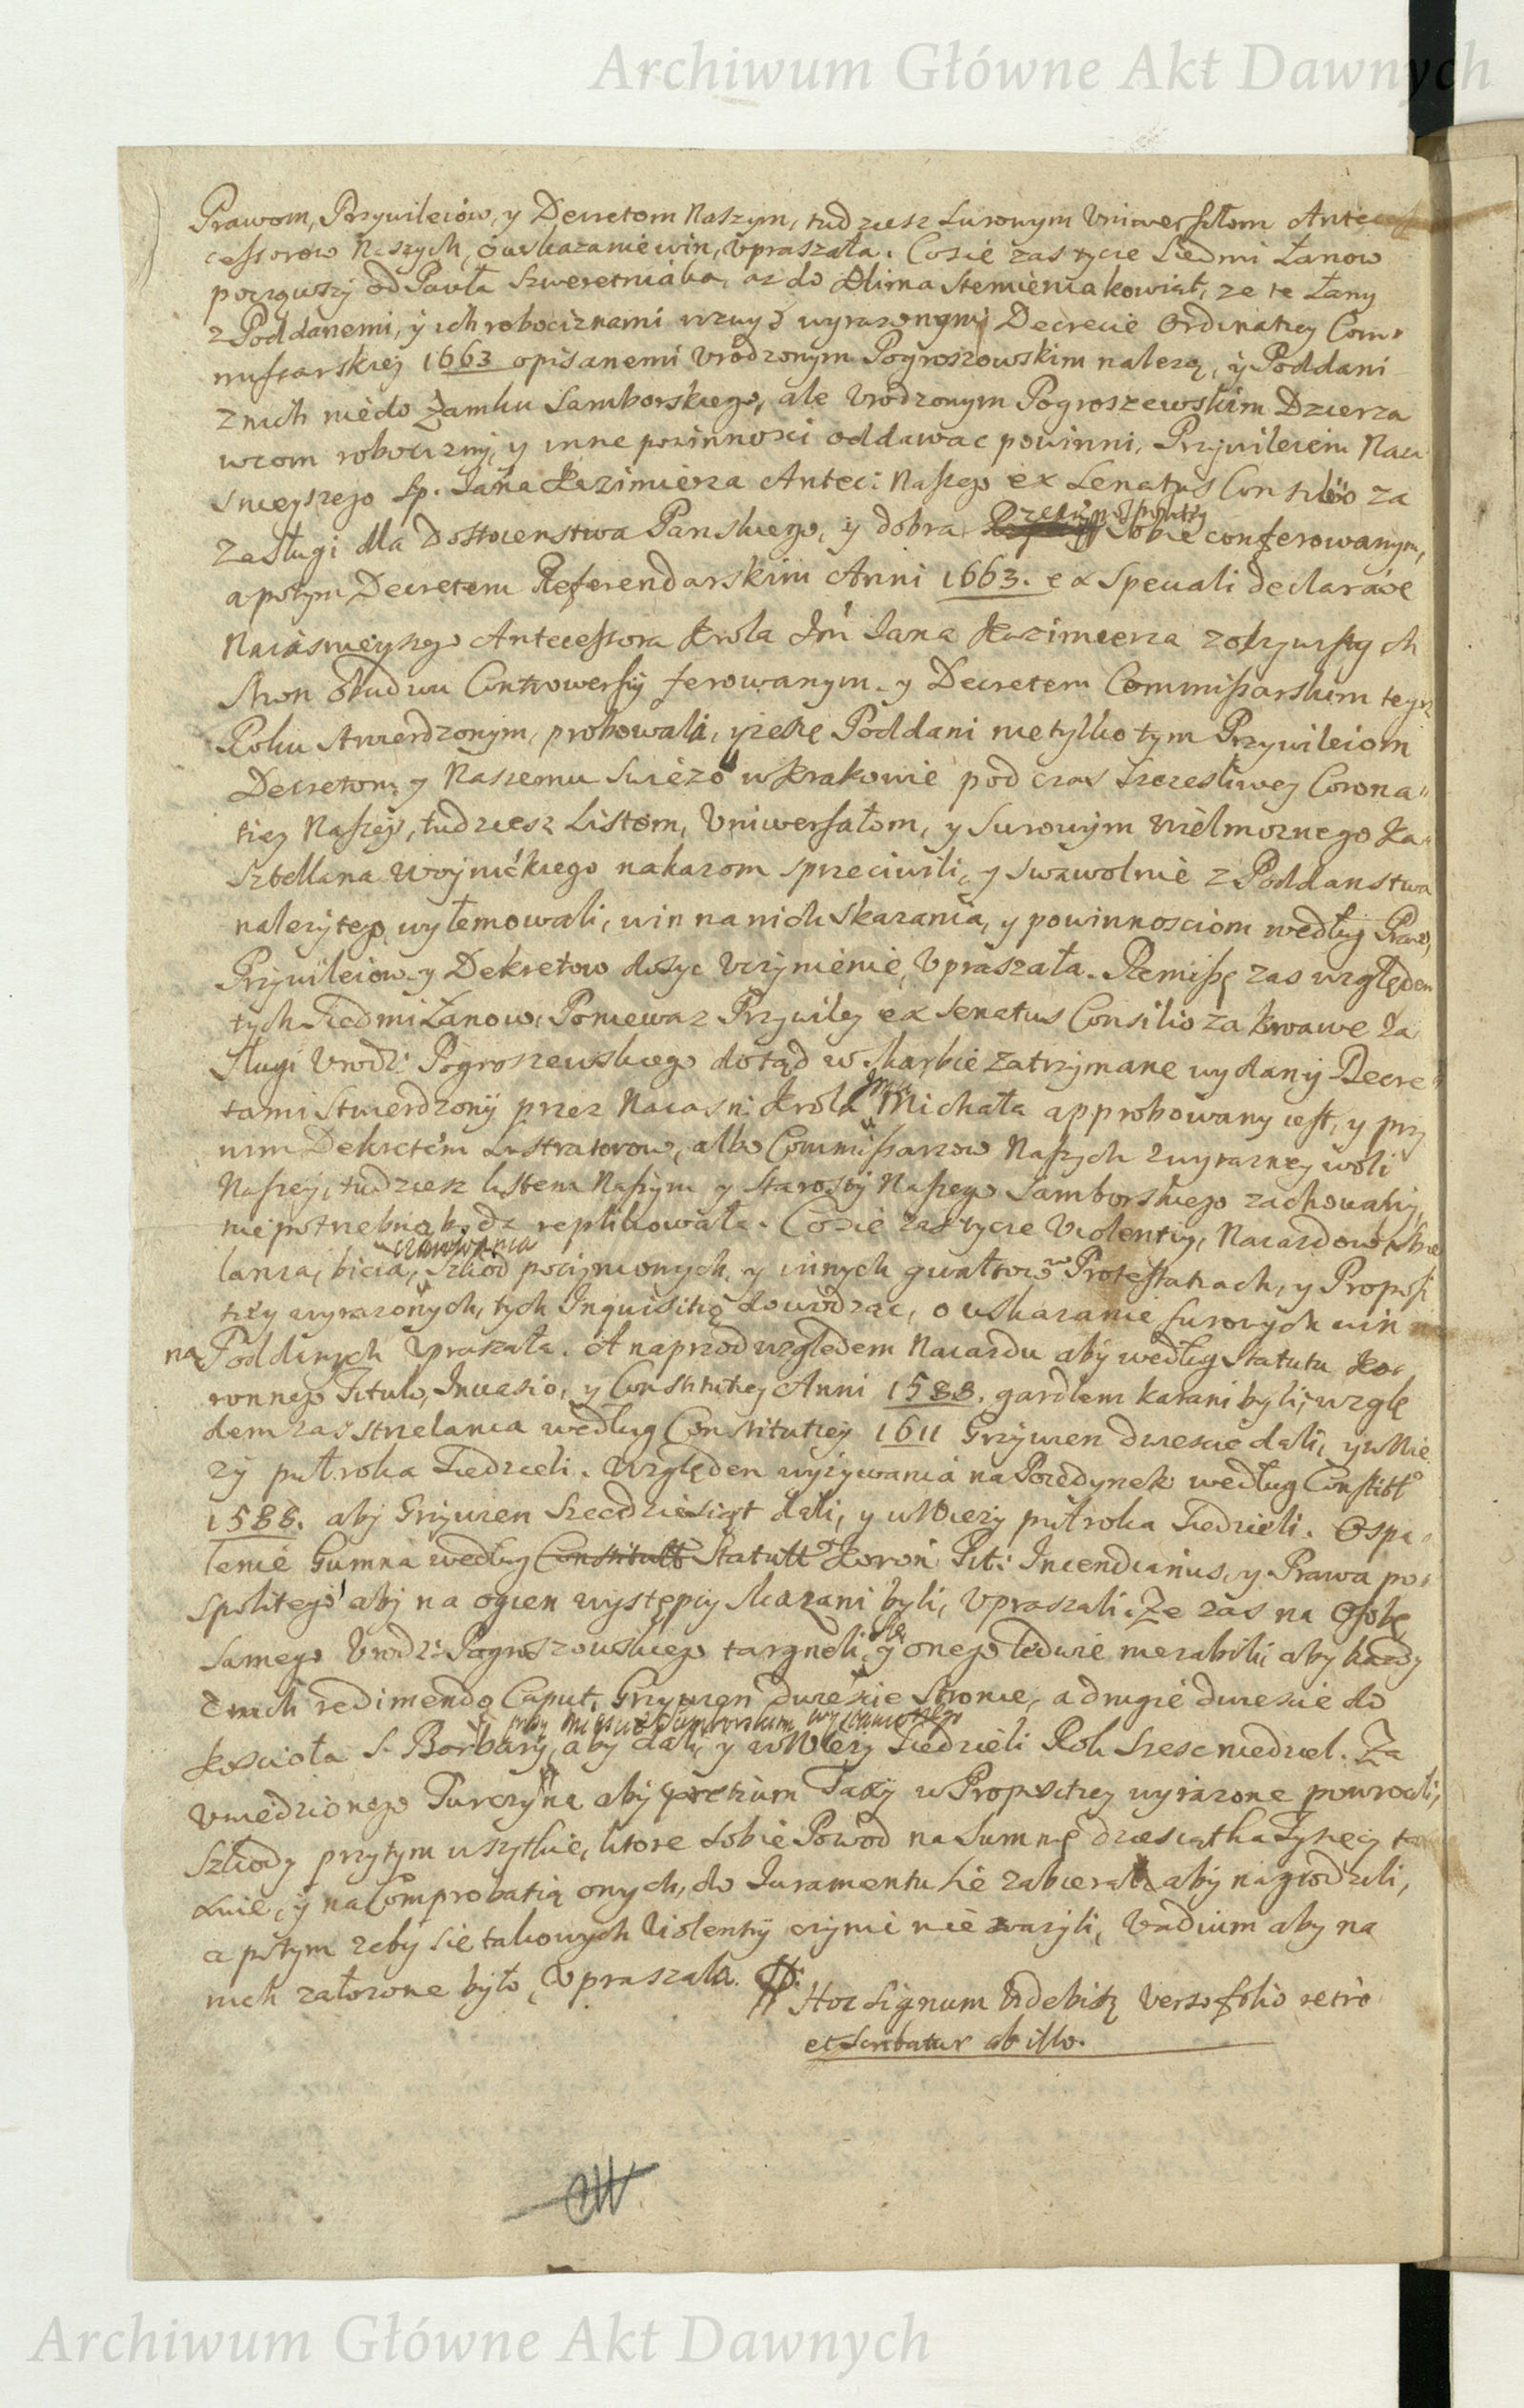 Archiwum Główne Akt Dawnych
Prawom, Przywileiów, y Decretom Naszym, tudziesz Surowym Vniwersałom Antec
cessorow Naszych, o uskazanie win, vpraszała. Cosie zas tycie Siedmi Łanow
począwszy od Pawła Szweretniaka, az do Klima Stemieniakowiat, ze te Łany
z Poddanemi, y ich robociznami wzwyż wyrazonymi Decrecie Ordinatiey Com
missarskiey 1663 opisanemi Vrodzonym Pogroszowskim nalezą, y Poddani
z nich nie do Zamku Samborskiego, ale Vrodzonym Pogroszewskim Dzierza
wcom robocizny, y inne powinnosci oddawac powinni, Przywileiem Naia
snieyszego Sp. Jana Kazimierza Antec: Naszego ex Senatus Consilio za
zasługi dla Dostoienstwa Panskiego, y dobra Rzeczypospolitey Sobie conferowanym,
a potym Decretem Referendarskim Anni 1663. ex Speciali declaratõe
Naiasnieyszego Antecessora Krola Jmi Jana Kazimierza zobzwszych
stron obudwu Controwersiy ferowanym. y Decretem Commissarskim tegoz
Roku stwierdzonym, probowali, y ze się Poddani nie tylko tym Przywileiom
Decretom, y Naszemu swiezo w Krakowie pod czas szczesliwey Corona
tiey Naszey, tudziesz Listom, Vniwersałom, y surowym Wielmoznego Ka
sztellana Woynickiego nakazom sprzeciwili, y swawolnie z Poddanstwa
nalezytego wyłemowali, win na nich skazania, y powinnosciom według Praw,
Przywileiow y Dekretow dosyc vczynienie, Vpraszała. Remissę zas względem
tych Siedmi Łanow, Poniewaz Przywiley ex Senatus Consilio za krwawe za
sługi Vrodz: Pogroszewskiego dotąd w Skarbie zatrzymane wydany Decre
tami stwierdzony przez Naiasn: Krola Jmci Michała approbowany iest, y przy
nim Dekretem Lustratorow, albo Commissarzow Naszych z wyrazney woli
Naszey, tudziesz listem Naszym y Starosty Naszego Samborskiego zachowany,
niepotrzebną bydz replikowała. Cosie zas tycie Violentiy, Naiazdow, strze
lania, bicia, czarowania szkod poczynionych, y innych gwałtow w Protestatiach, y Proposi
tiey wyrazonych, tych Inquisitią dowodząc, o uskazanie surowych win na
na Poddanych vpraszała. A naprzod względem Naiazdu aby według Statutu Ko
ronnego Titulo, Inuasio, y Constitutiey Anni 1588. gardłem karani byli, wzglę
dem zas strzelania według Constitutiey 1611 Grzywien dwiescie dali, y w Wie
zy puł roka siedzieli. Względem wyzywania na Poiedynek według Constitt
1588. aby Grzywien szescdziesiąt dali, y w Wiezy puł roka siedzieli. O spa
lenie Gumna według Constitutt Statutt Koron Tit: Incendiarius, y Prawa po
spolitego aby na ogien występcy skazani byli, vpraszali. Ze zas na osobę
samego Vrodz: Pogroszowskiego targneli się y onego ledwie niezabili, aby kazdy
z nich redimendo Caput, Grzywien dwiescie stronie, a drugie dwiescie do
przy miescie Samborskim wystawionego
kosciola S. Barbary, aby dali, y w Wiezy Siedzieli Rok szesc niedziel. Za
vwiedzionego Turczyna aby pretium Taxy w Propositiey wyrazone powrocili,
szkody przytym wszytkie, ktore sobie Powod na summę dziesiątka Tysięcy
snie, y na Comprobatią onych, do Juramentu sie zabierał, aby nagrodzili,
a potym zeby sie takowych Violentiy czynic nie wazyli, Vadium aby na
nich załozone było, vpraszała.
Hoc Signum Videbis verso folio retro
et scribatur ab illo.
Archiwum Główne Akt Dawnych